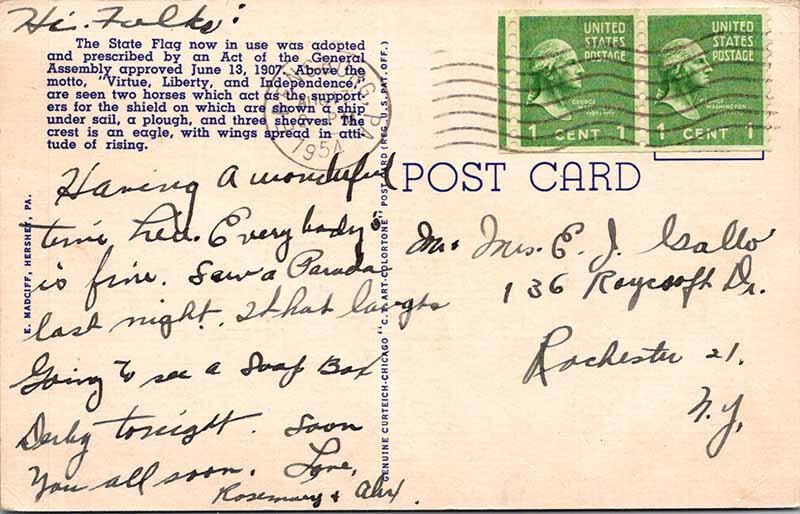 Hi. Folks:
The State Flag now in use was adopted
and prescribed by an Act of the General
Assembly approved June 13, 1907. Above the
motto "Virtue, Liberty, and Independence,"
are seen two horses which act as the support-
ers for the shield on which are shown a ship
under sail, a plough, and three sheaves. The
crest is an eagle, with wings spread in atti-
tude of rising.
Having a wonderful
time here. Everybody
is fine. Saw a Parade
last night.
Going to see a Soap Box
Derby tonight. Soon
You all soon. Love,
Rosemary + Alex.
E. MADCIFF, HERSHEY, PA.
GENUINE CURTEICH-CHICAGO "C.T. ART-COLORTONE" POST CARD (REG. U.S. PAT. OFF.)
PA.
1954
UNITED
STATES
POSTAGE
GEORGE
WASHINGTON
1 CENT 1
UNITED
STATES
POSTAGE
GEORGE
WASHINGTON
1 CENT 1
POST CARD
Mr. Mrs. E. J. Gallo
136 Roycroft Dr.
Rochester 21.
N.Y.